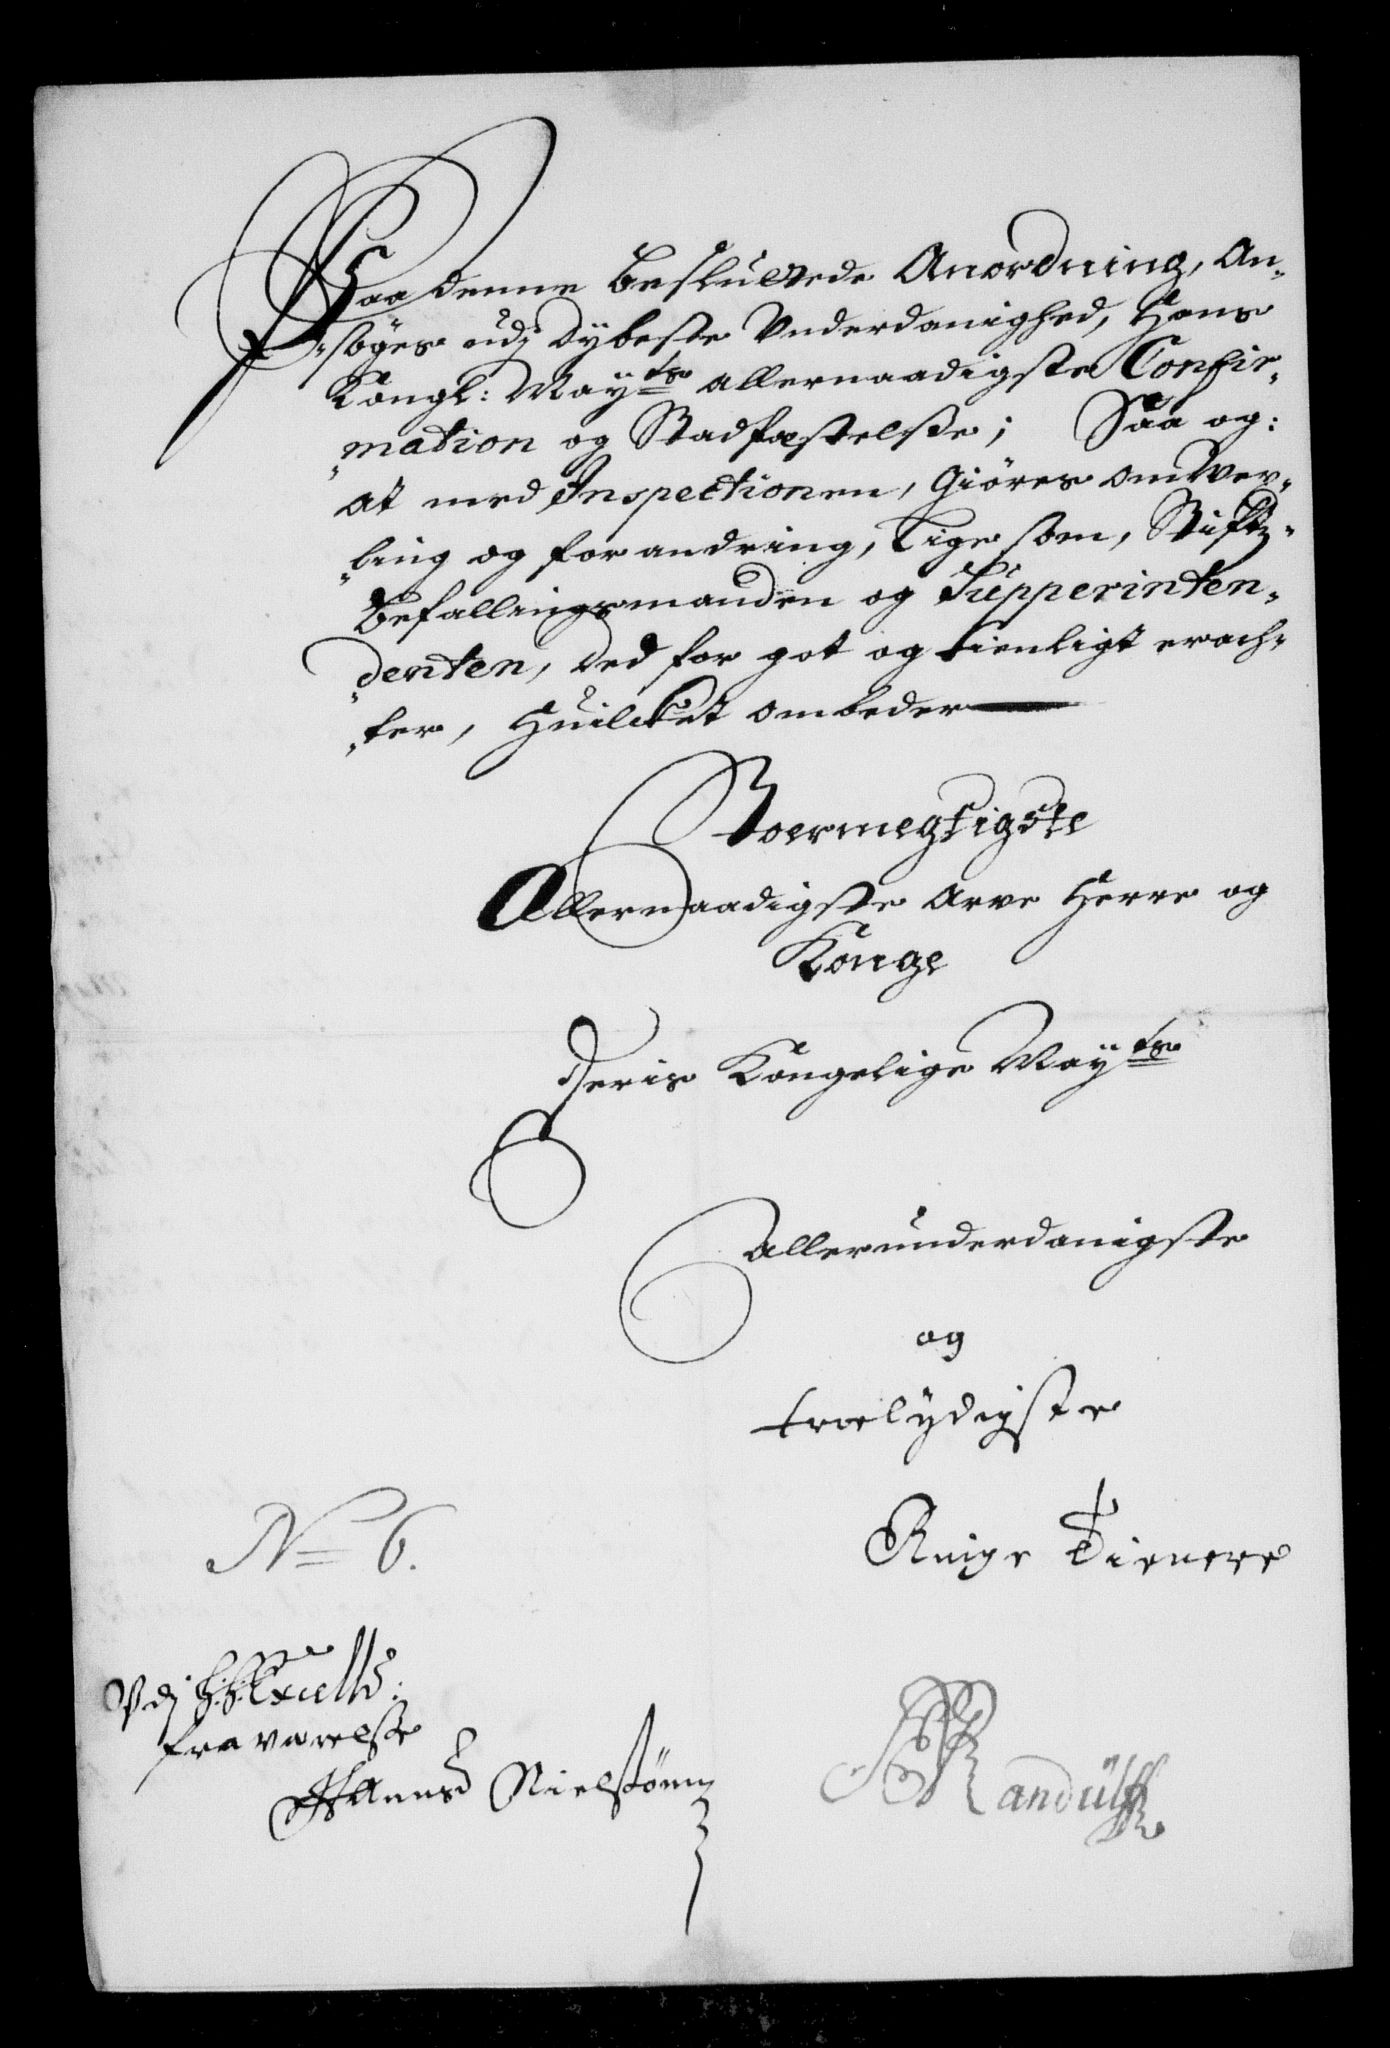 Paa denne besluttede Anordning, An-
søges udj dybeste Vnderdanighed, Hans
Kongl: Mayts allernaadigste Confir-
mation og Stadfæstelsse; Saa og:
at med Inspectionen, Giöres omVex-
ling og forandring, Lige som, Stiftz-
befallingsmanden og Süpperinten-
denten, ded for got og tienligt erach-
ter, Huilcket ombeder
Stoermegtigste
Allernaadigste Arve Herre og
Konge
Deris Kongelige Mayts
allerunderdanigste
og
troelÿdigste
Ringe Tienere
No 6.
Vdj H. Excell:
fraværelsse
Hanns Nielsönn
Randülff